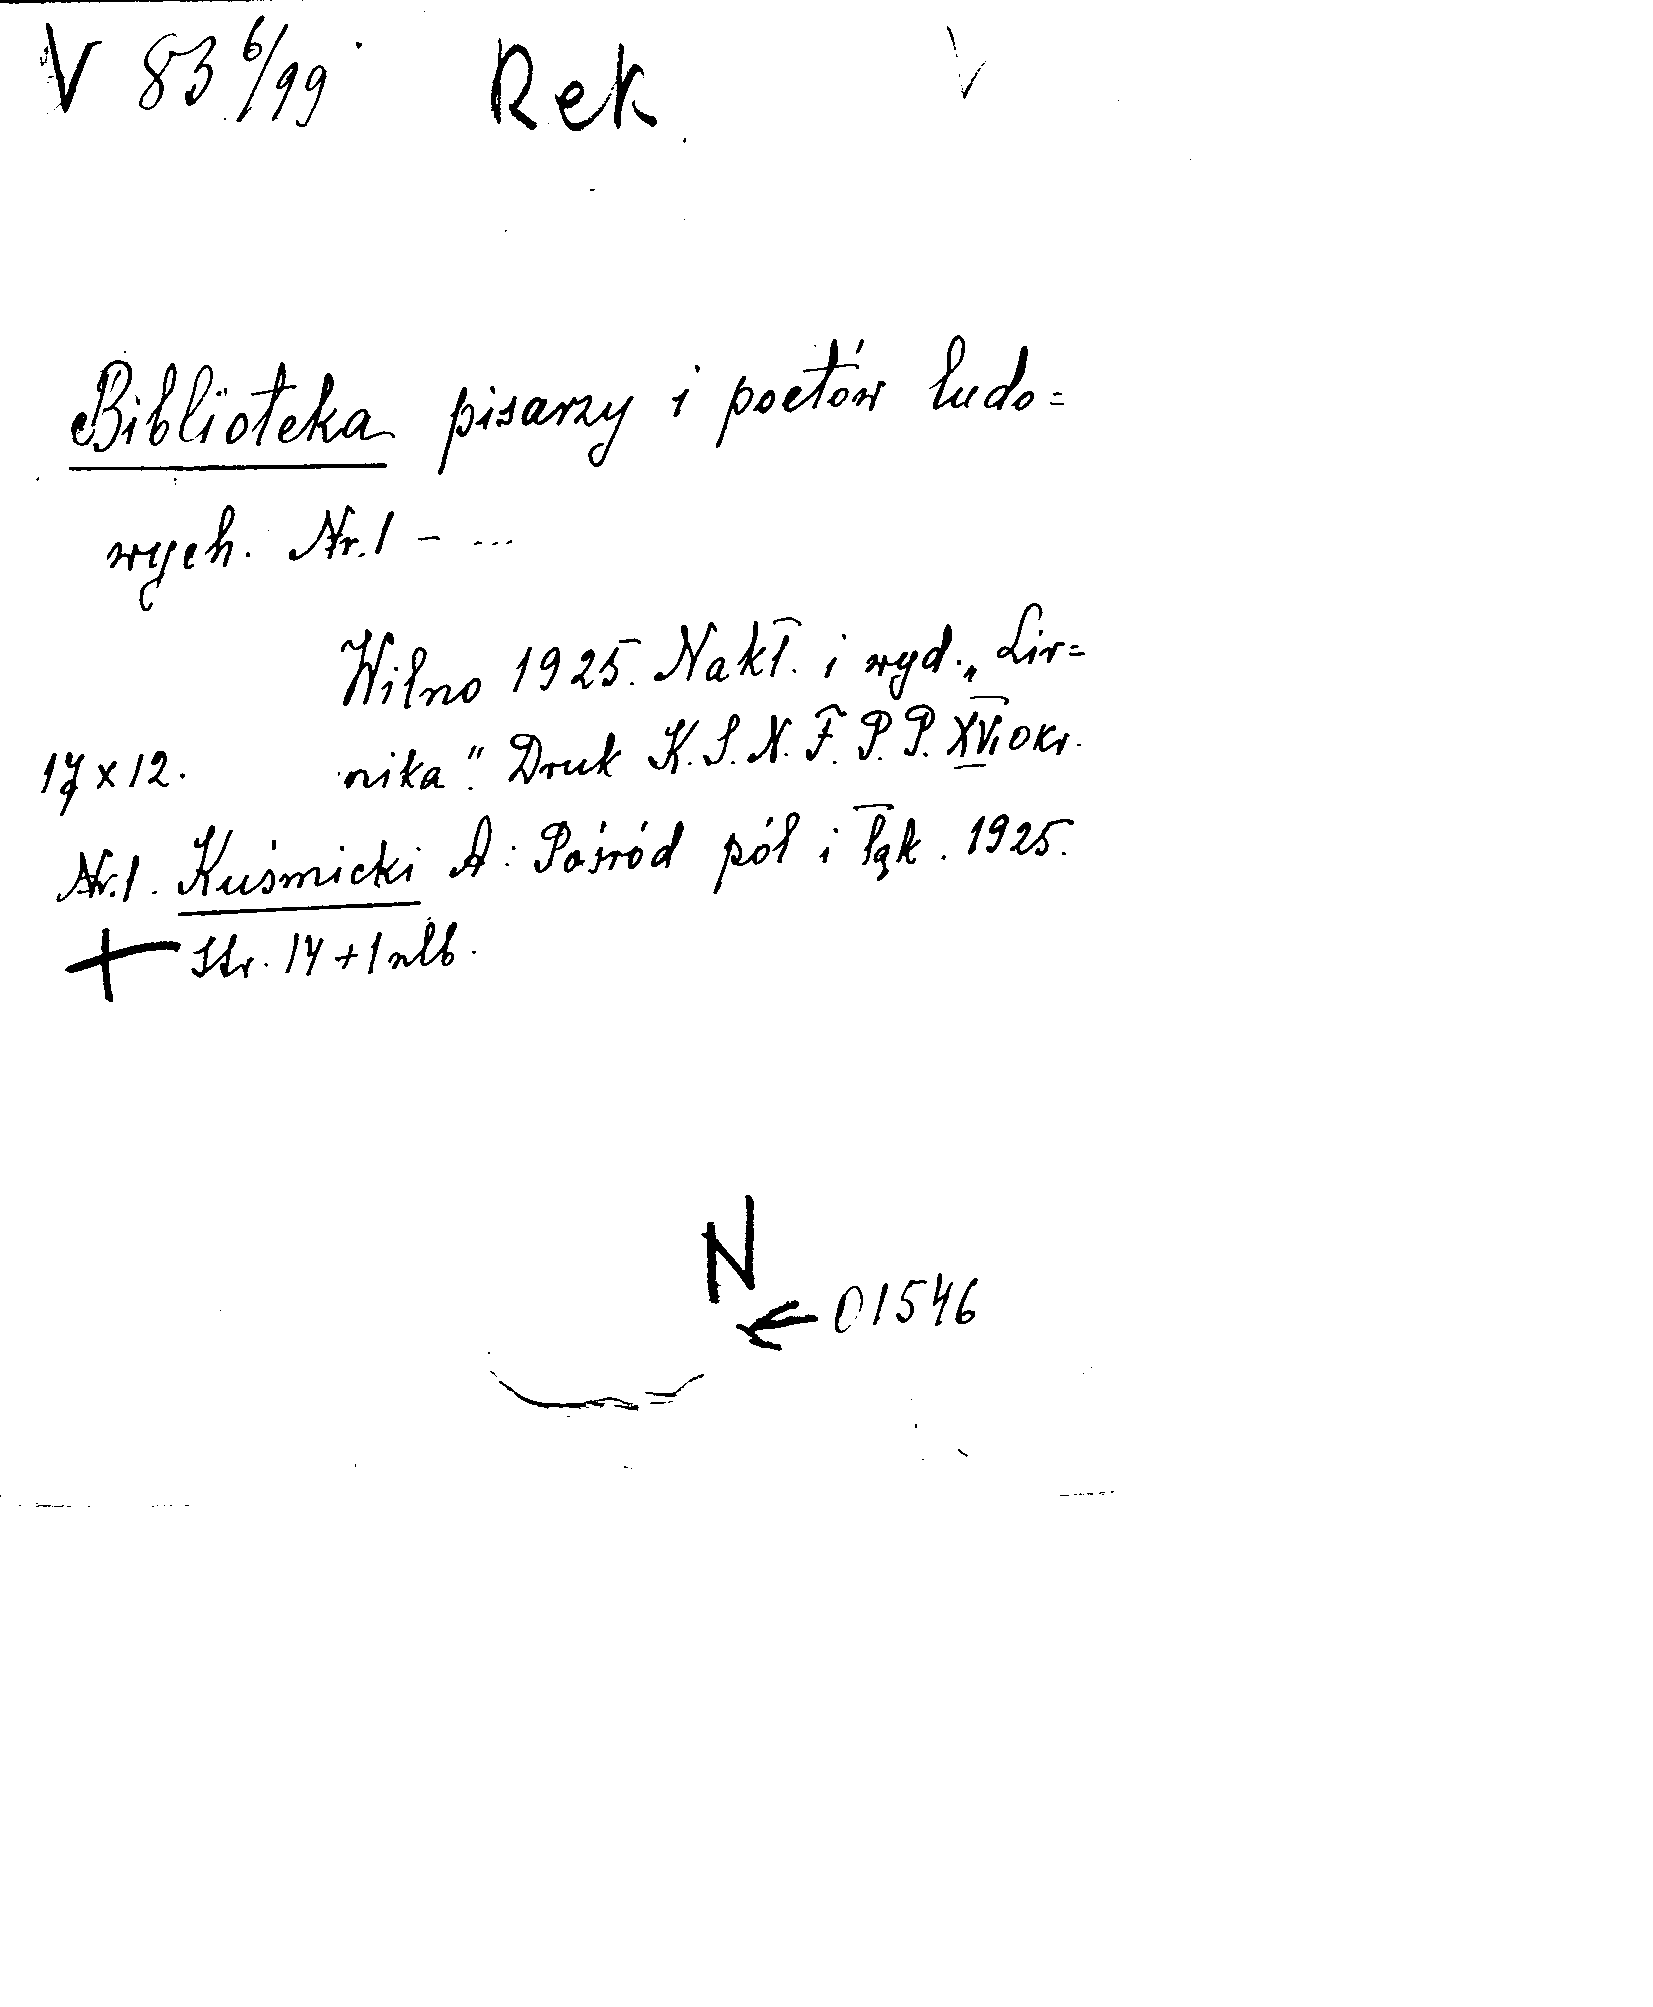 V 83 6/99 Rek V
Biblioteka pisarzy i poetów ludo=
wych. Nr. 1 - ...
Wilno 1925. Nakł. i wyd. „Lir=
17 x 12. nika". Druk K. S. N. F. P. P. XVI okr.
Nr. 1. Kuśmicki A: Pośród pól i łąk. 1925.
+ Str. 14 + 1 nlb.
N
← 01546